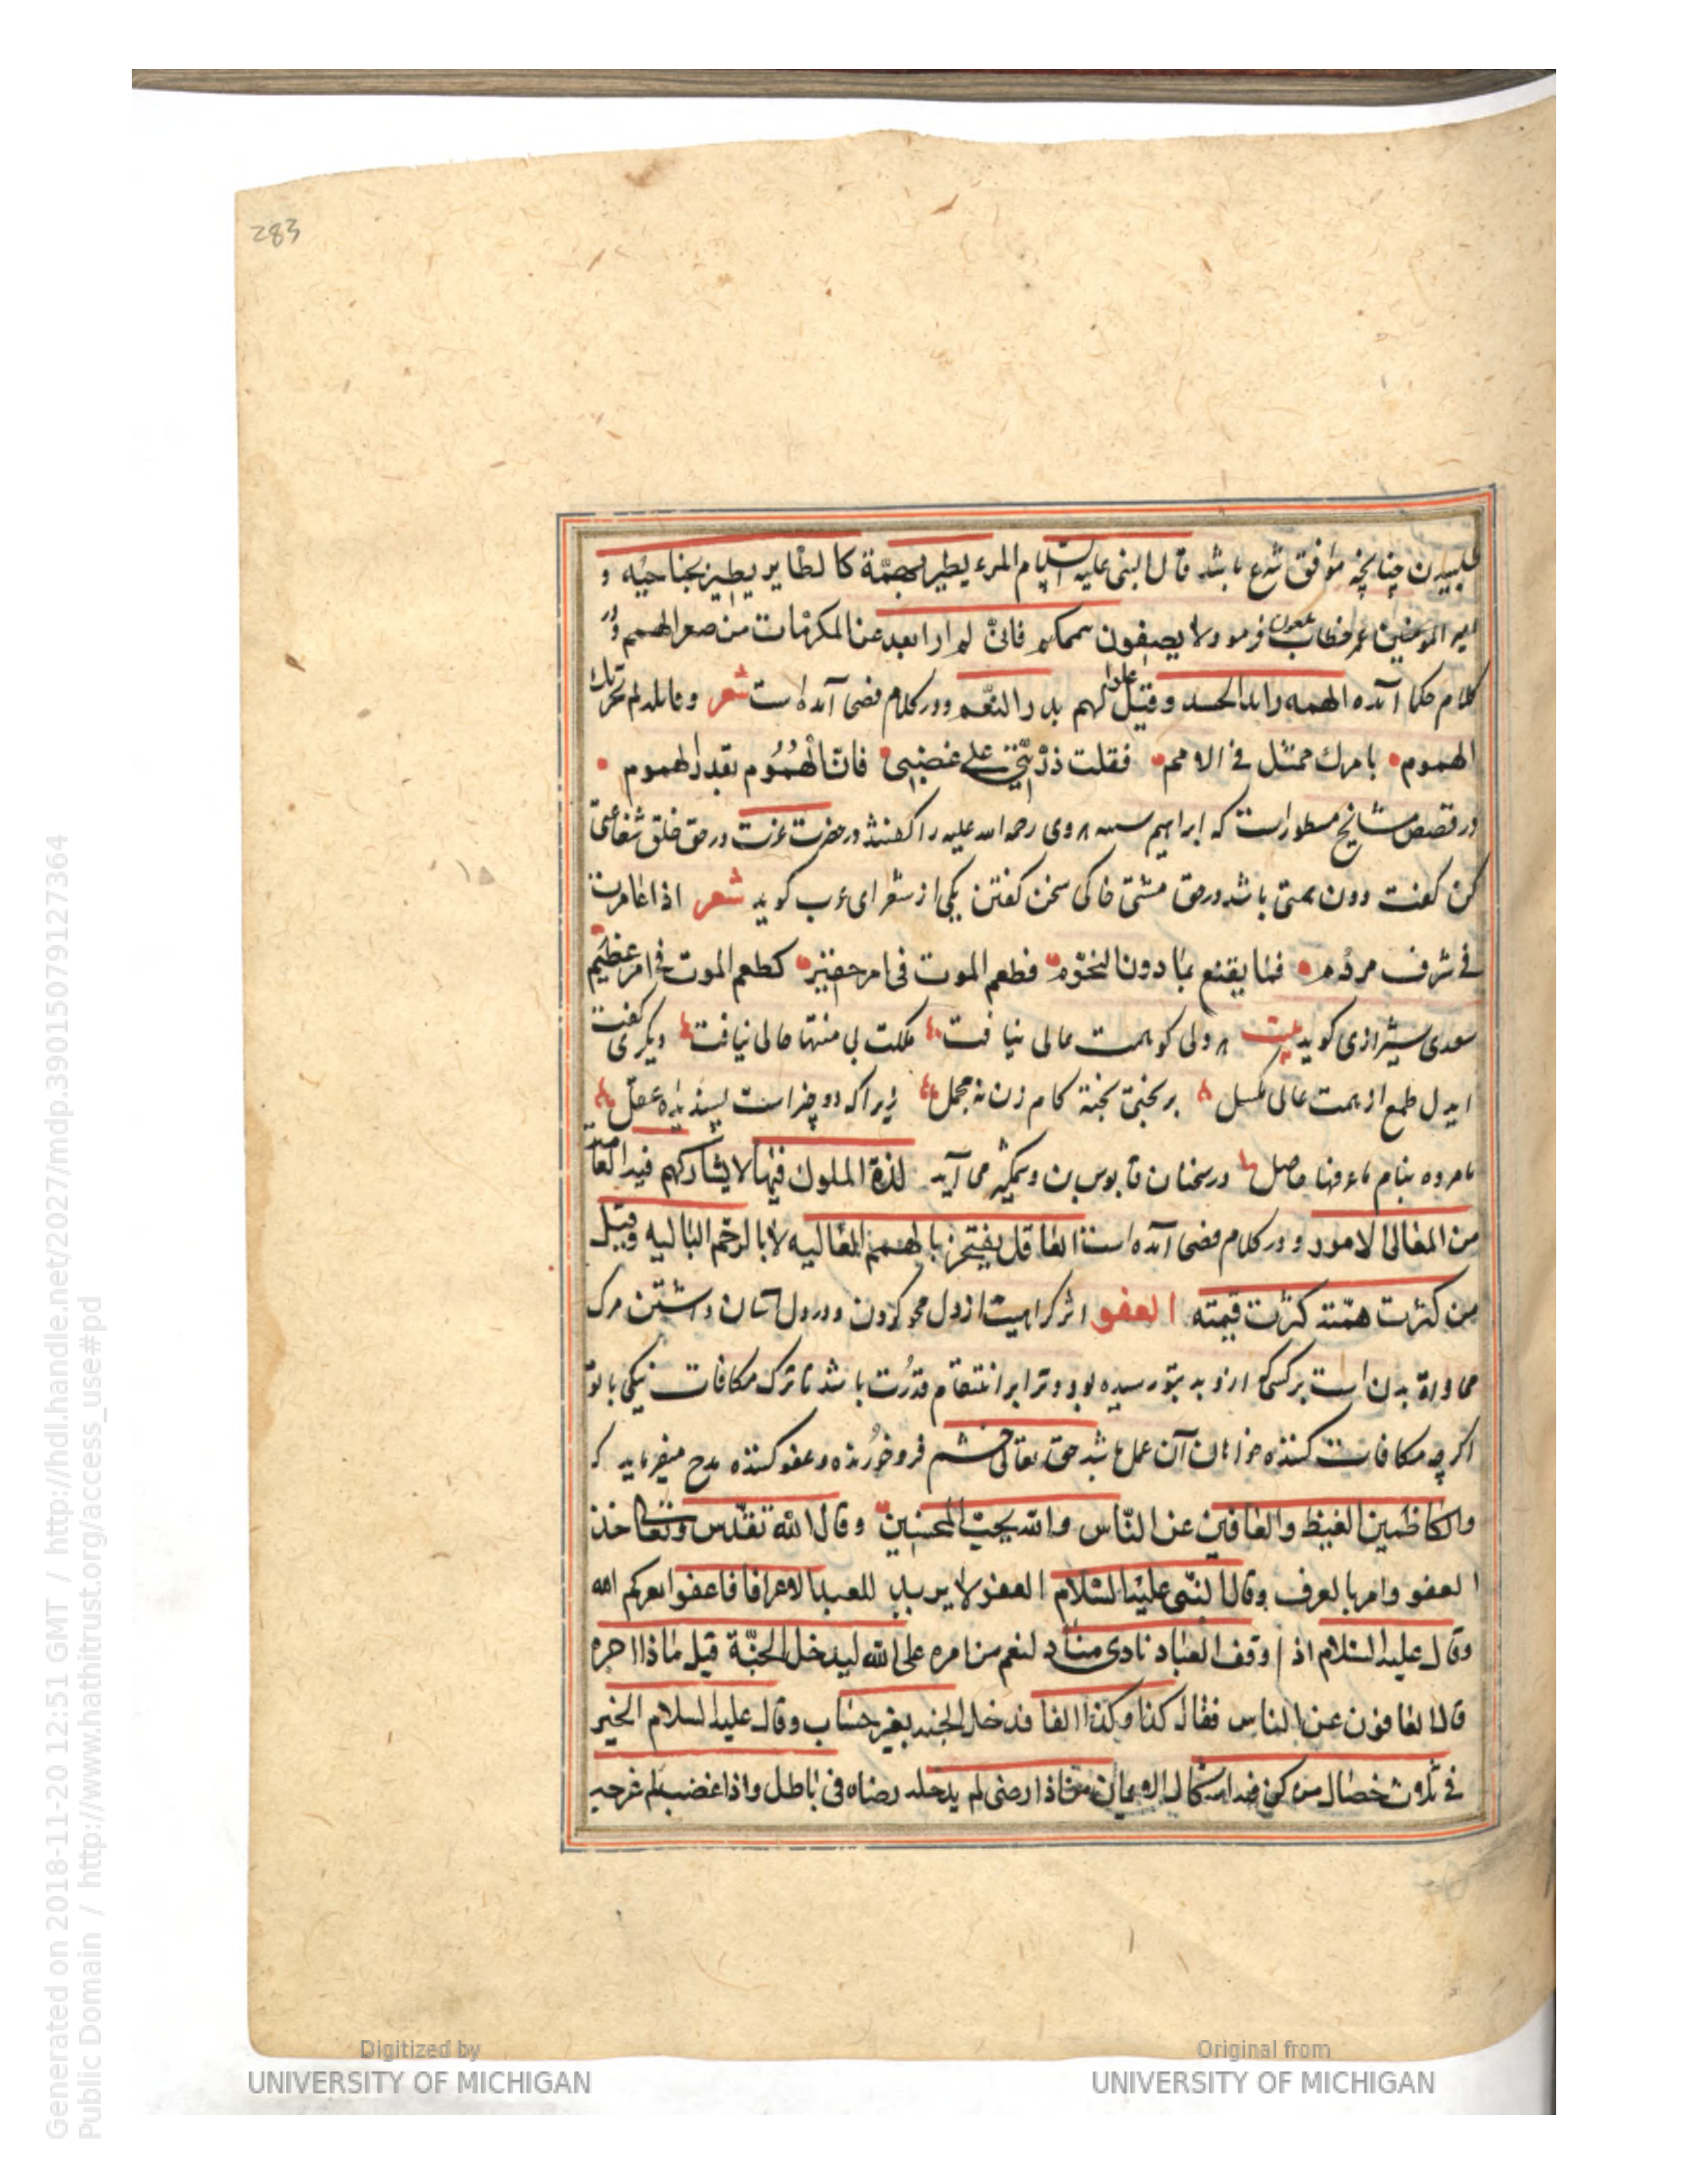 283
طلبیدن چنانچه موافق شرع باشد قال النبی علیه السلام المرء یطیر بهمّة کا لطایر یطیر بجناحیه و
امیر المومنین عمر خطاب فرمود ولا یصغون هممکم فانیّ لم ارا بعد عن المکرمات من صغر الهمم و در
کلام حکما آمده الهمه راید الحسد و قیل لهم بذر النقم و در کلام فضی آمده است شعر و قایلة لم تحرک
الهموم بامرک ممتثل فی الامم فقلت ذرینی علی غضبی فانّ الهُمُوم بقدر الهموم
در قصص مشایخ مسطور است که ابراهیم هروی رحمه الله علیه را گفتند در حضرت عزت در حق خلق شفاعتی
کن گفت دون همتی باشد در حق مشتی خاکی سخن گفتن یکی از شعرای عرب گوید شعر اذا غامرت
فی شرف مروم فما یقنع بما دون النجوم فطعم الموت فی امر حقیر کطعم الموت فی امر عظیم
سعدی شیرازی گوید بیت هر ولی کو همت عالی نیا فت مملکت بی منتها حالی نیافت دیگری گفت
ایدل طمع از همت عالی مگسل بر بختی بخته کام زن نه مجمل زیرا که دو چیز است پسندیده عقل
نامرده بنام در سخنان قابوس بن وشمگیر می آید لذة الملوک فیما لا یشارکهم فیه العامة
من المعالی الامور و در کلام فضی آمده است العاقل یفتخر بالهمم العالیه لا بالرمم البالیه و قیل
من کثرت همّته کثرت قیمته العفو اثر کراهیت از دل محو کردن و در دل آسان داشتن مرک
مجاراة بدی است بر کسی که از و بد بتو رسیده بود و ترا بر انتقام قدرت باشد تا ترک مکافات نیکی با تو
اگر چه مکافات کننده خواهان آن عمل باشد حق تعالی خشم فرو خورنده و عفو کننده مدح میفرماید که
والکاظمین الغیظ والعافین عن النّاس والله یحبّ المحسنین و قال الله تقدّس وتعالی خذ
العفو وامر بالعرف وقال النبی علیه السّلام العفو لا یزید للعبد الا عزا فاعفوا یعزکم الله
وقال علیه السّلام اذا وقف العباد نادی مناد لیقم من اجره علی الله لیدخل الجنّة قیل ماذا اجره
قال العافون عن الناس فقال کذا و کذا الفا فدخل الجنه بغیر حساب وقال علیه السلام الخیر
فی ثلاث خصال من کن فیه استکمال الایمان من اذا رضی لم یدخله رضاه فی باطل واذا غضب لم یخرجه
Generated on 2018-11-20 12:51 GMT / http://hdl.handle.net/2027/mdp.39015079127364
Public Domain / http://www.hathitrust.org/access_use#pd
Digitized by
UNIVERSITY OF MICHIGAN
Original from
UNIVERSITY OF MICHIGAN